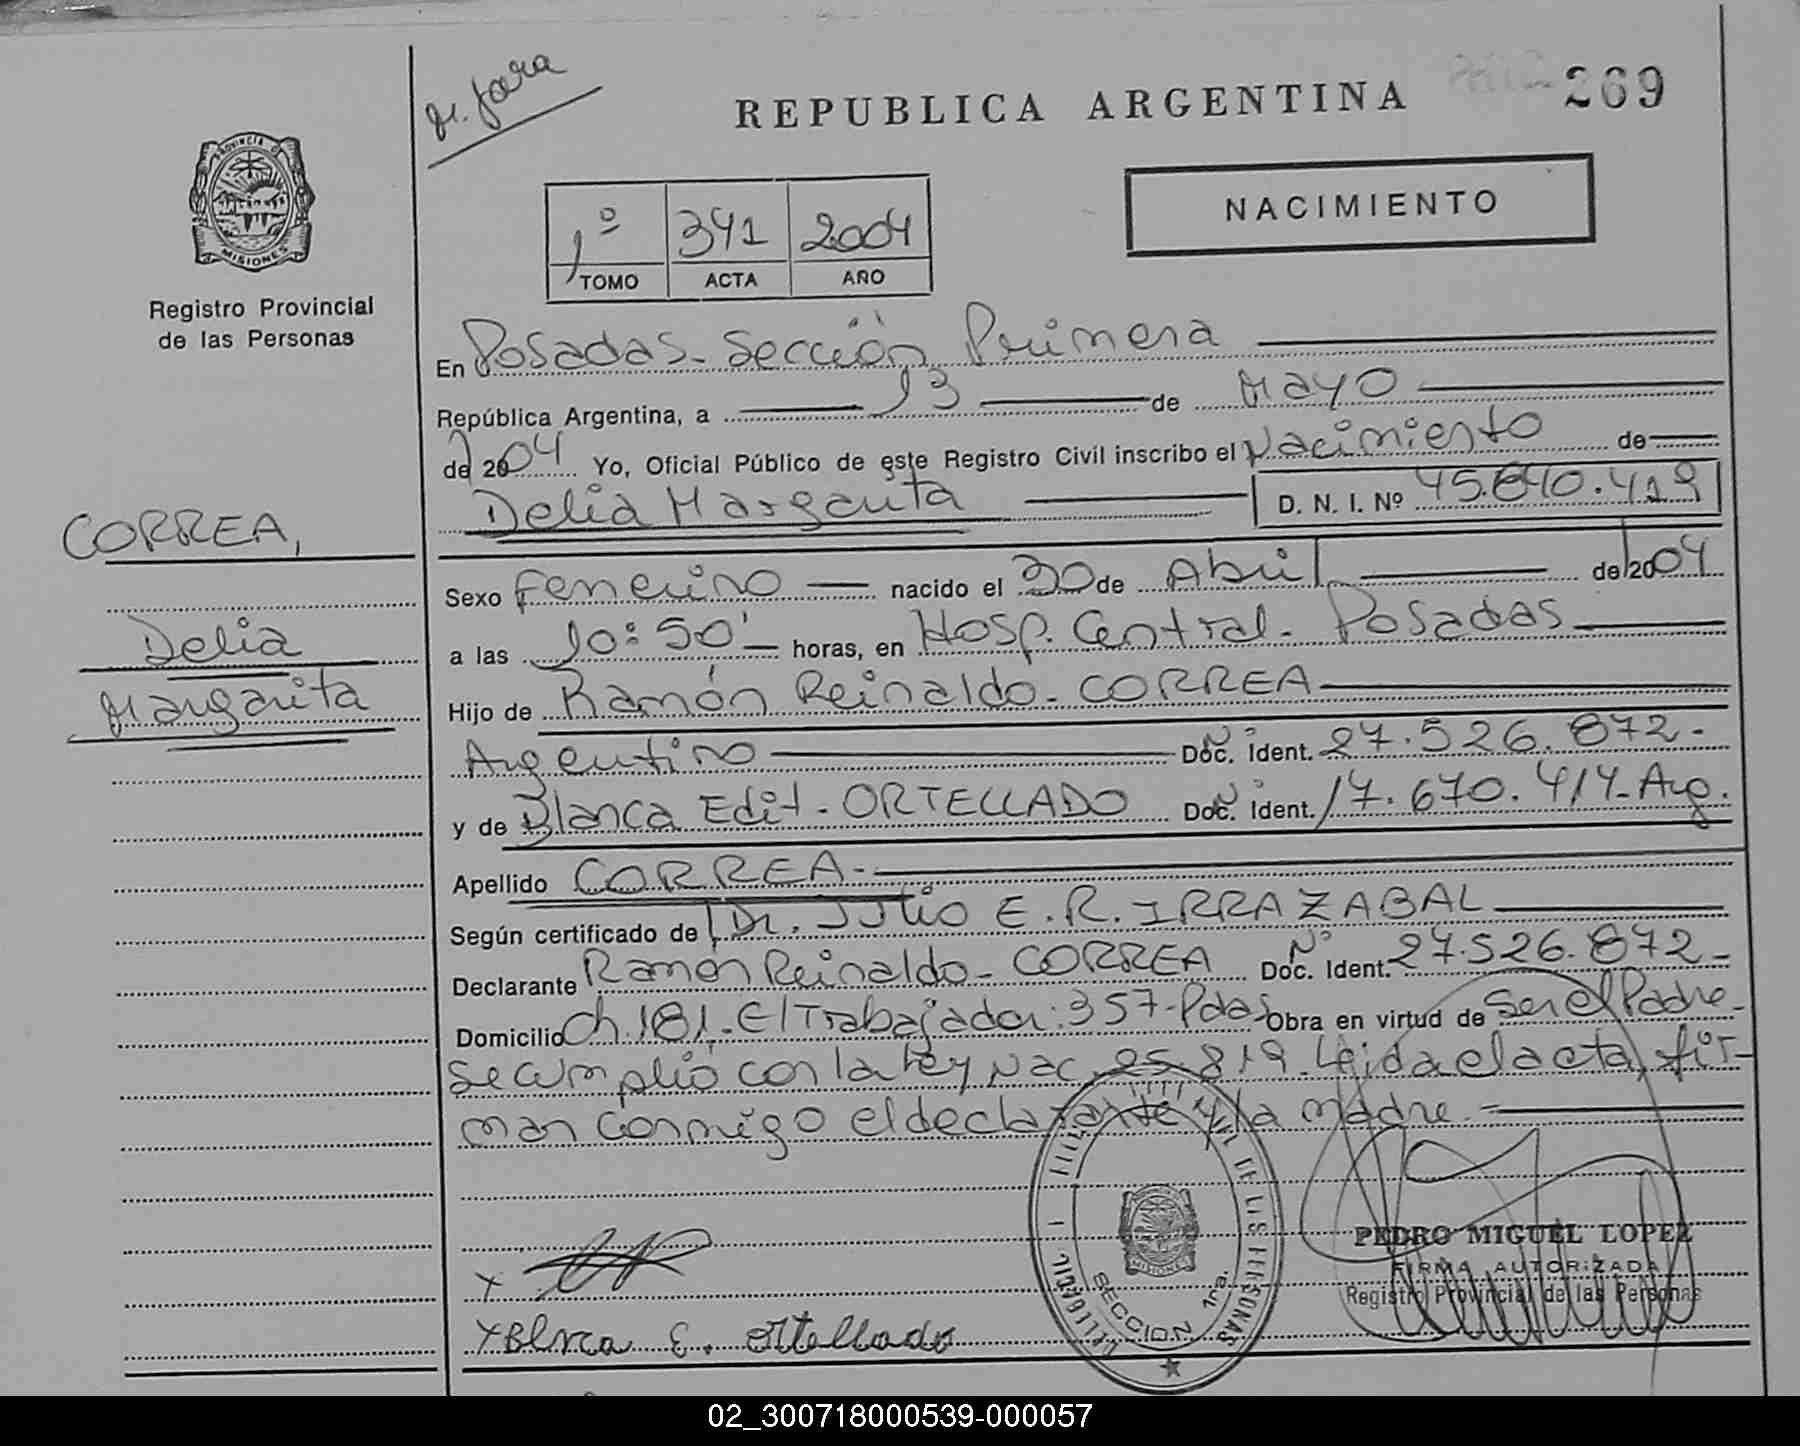 M. Jara
REPUBLICA ARGENTINA
269
PROVINCIA DE
MISIONES
Registro Provincial
de las Personas
1º 341 2004
TOMO ACTA AÑO
NACIMIENTO
En Posadas - Sección Primera
República Argentina, a 13 de Mayo
de 2004 Yo, Oficial Público de este Registro Civil inscribo el Nacimiento de
Delia Margarita D. N. I. Nº 45.840.419
CORREA,
Delia
Margarita
Sexo Femenino nacido el 30 de Abril de 2004
a las 10:50' horas, en Hosp. Central - Posadas
Hijo de Ramón Reinaldo - CORREA
Argentino Doc. Ident. Nº 27.526.872 -
y de Blanca Edit - ORTELLADO Doc. Ident. Nº 17.670.414 - Arg.
Apellido CORREA -
Según certificado de Dr. Julio E. R. IRRAZABAL
Declarante Ramón Reinaldo - CORREA Doc. Ident. Nº 27.526.872 -
Domicilio Ch. 181. El Trabajador: 357 - Pdas Obra en virtud de Ser el Padre -
se cumplió con la Ley Nac. 25.819. Leida el acta, fir-
man conmigo el declarante y la madre. -
X
X Blnca E. Ortellado
DE LAS PERSONAS
MISIONES
SECCION 1ra.
PEDRO MIGUEL LOPEZ
FIRMA AUTORIZADA
Registro Provincial de las Personas
02_300718000539-000057